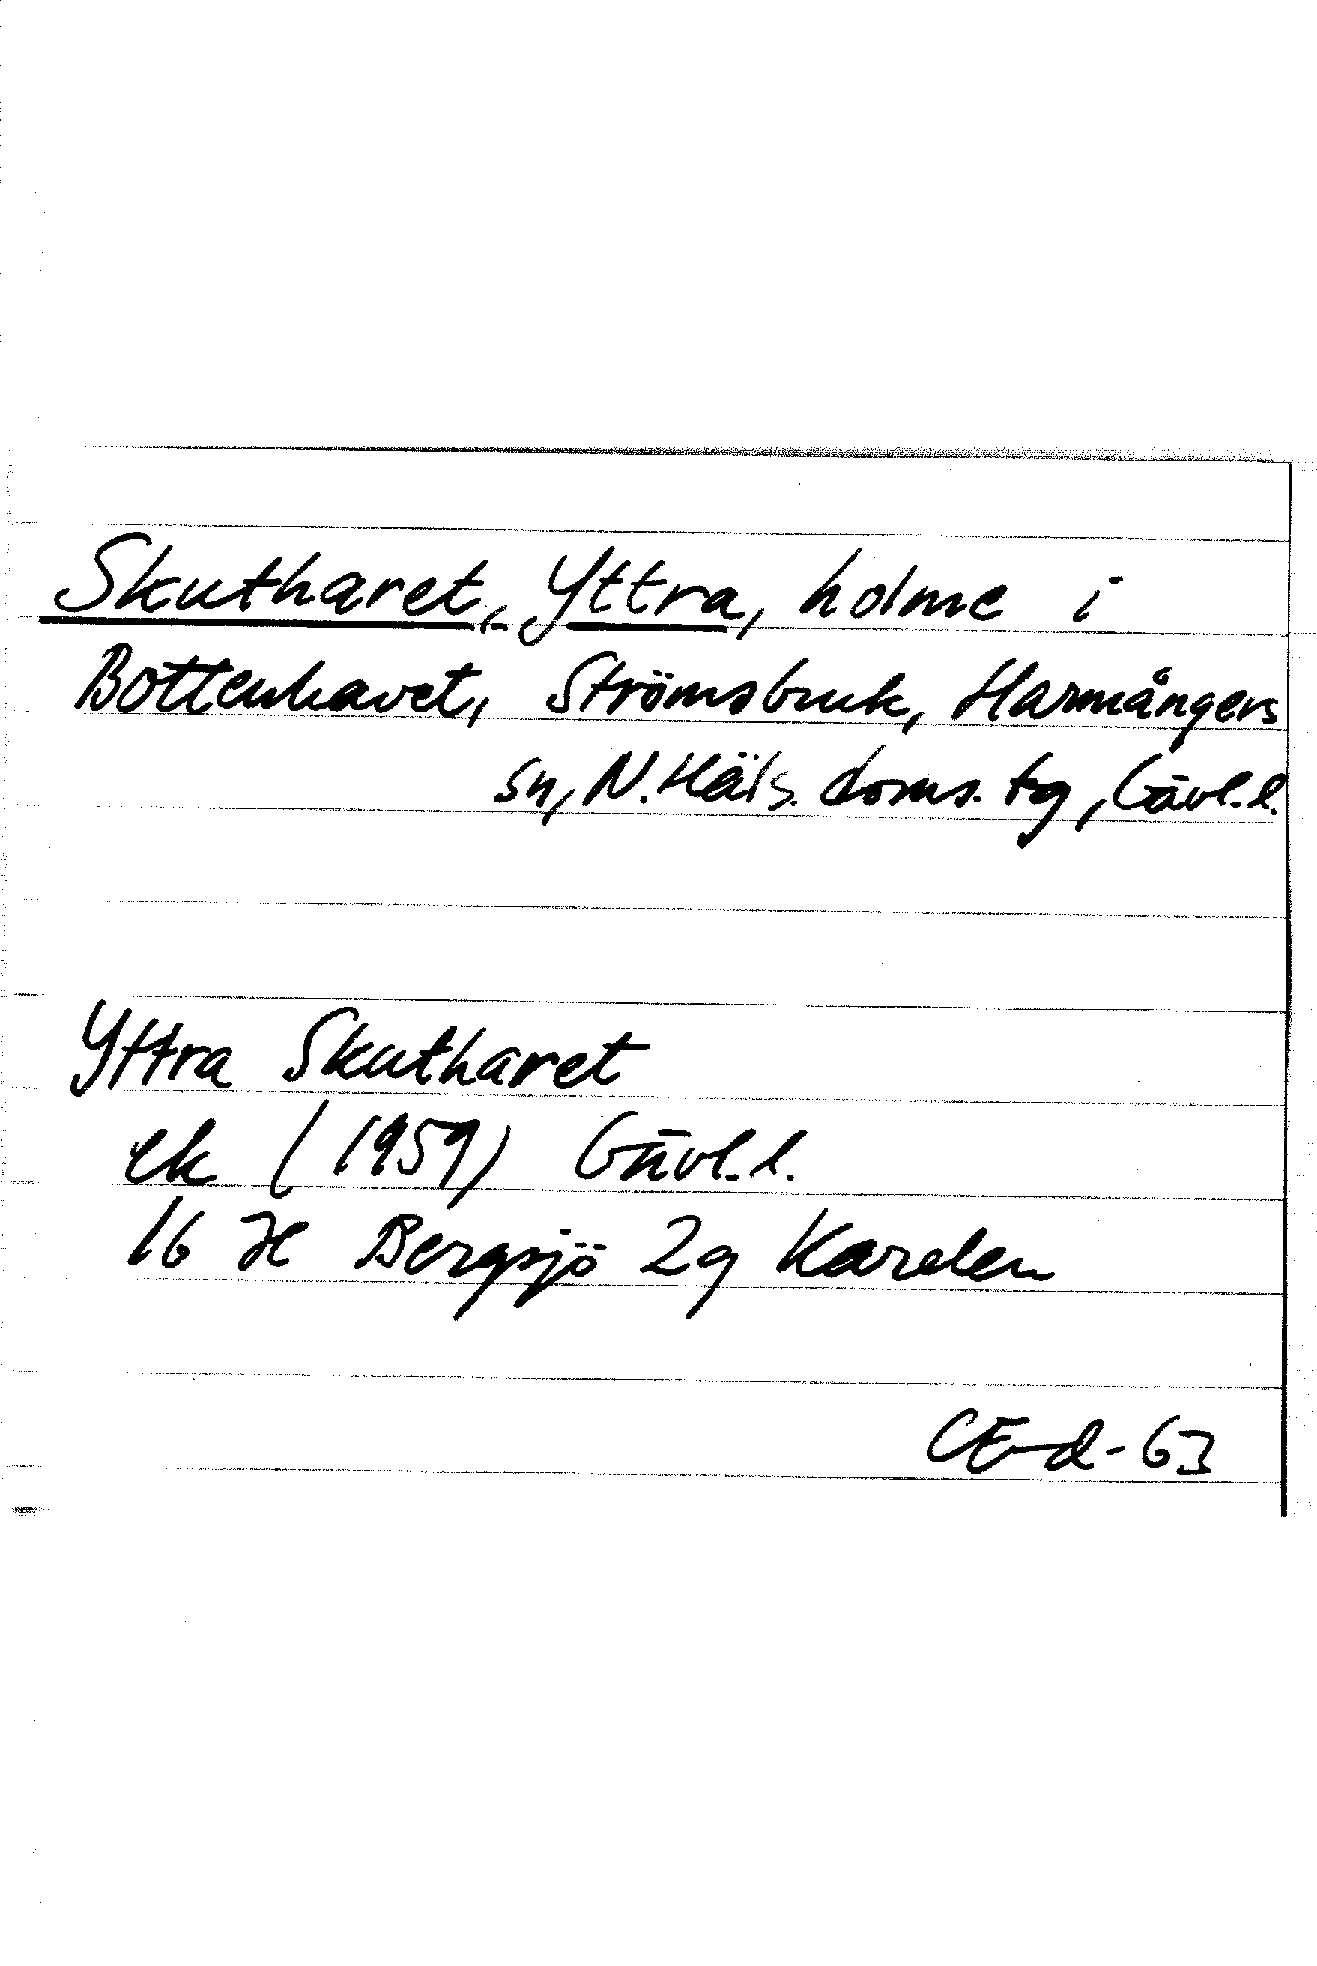 Skutharet, Yttra, holme i
Bottenhavet, Strömsbruk, Harmångers
sn, N. Häls. doms. tg, Gävl. l.
Yttra Skutharet
ek (1959) Gävl. l.
16 H Bergsjö 2g Karelen
CEd-63